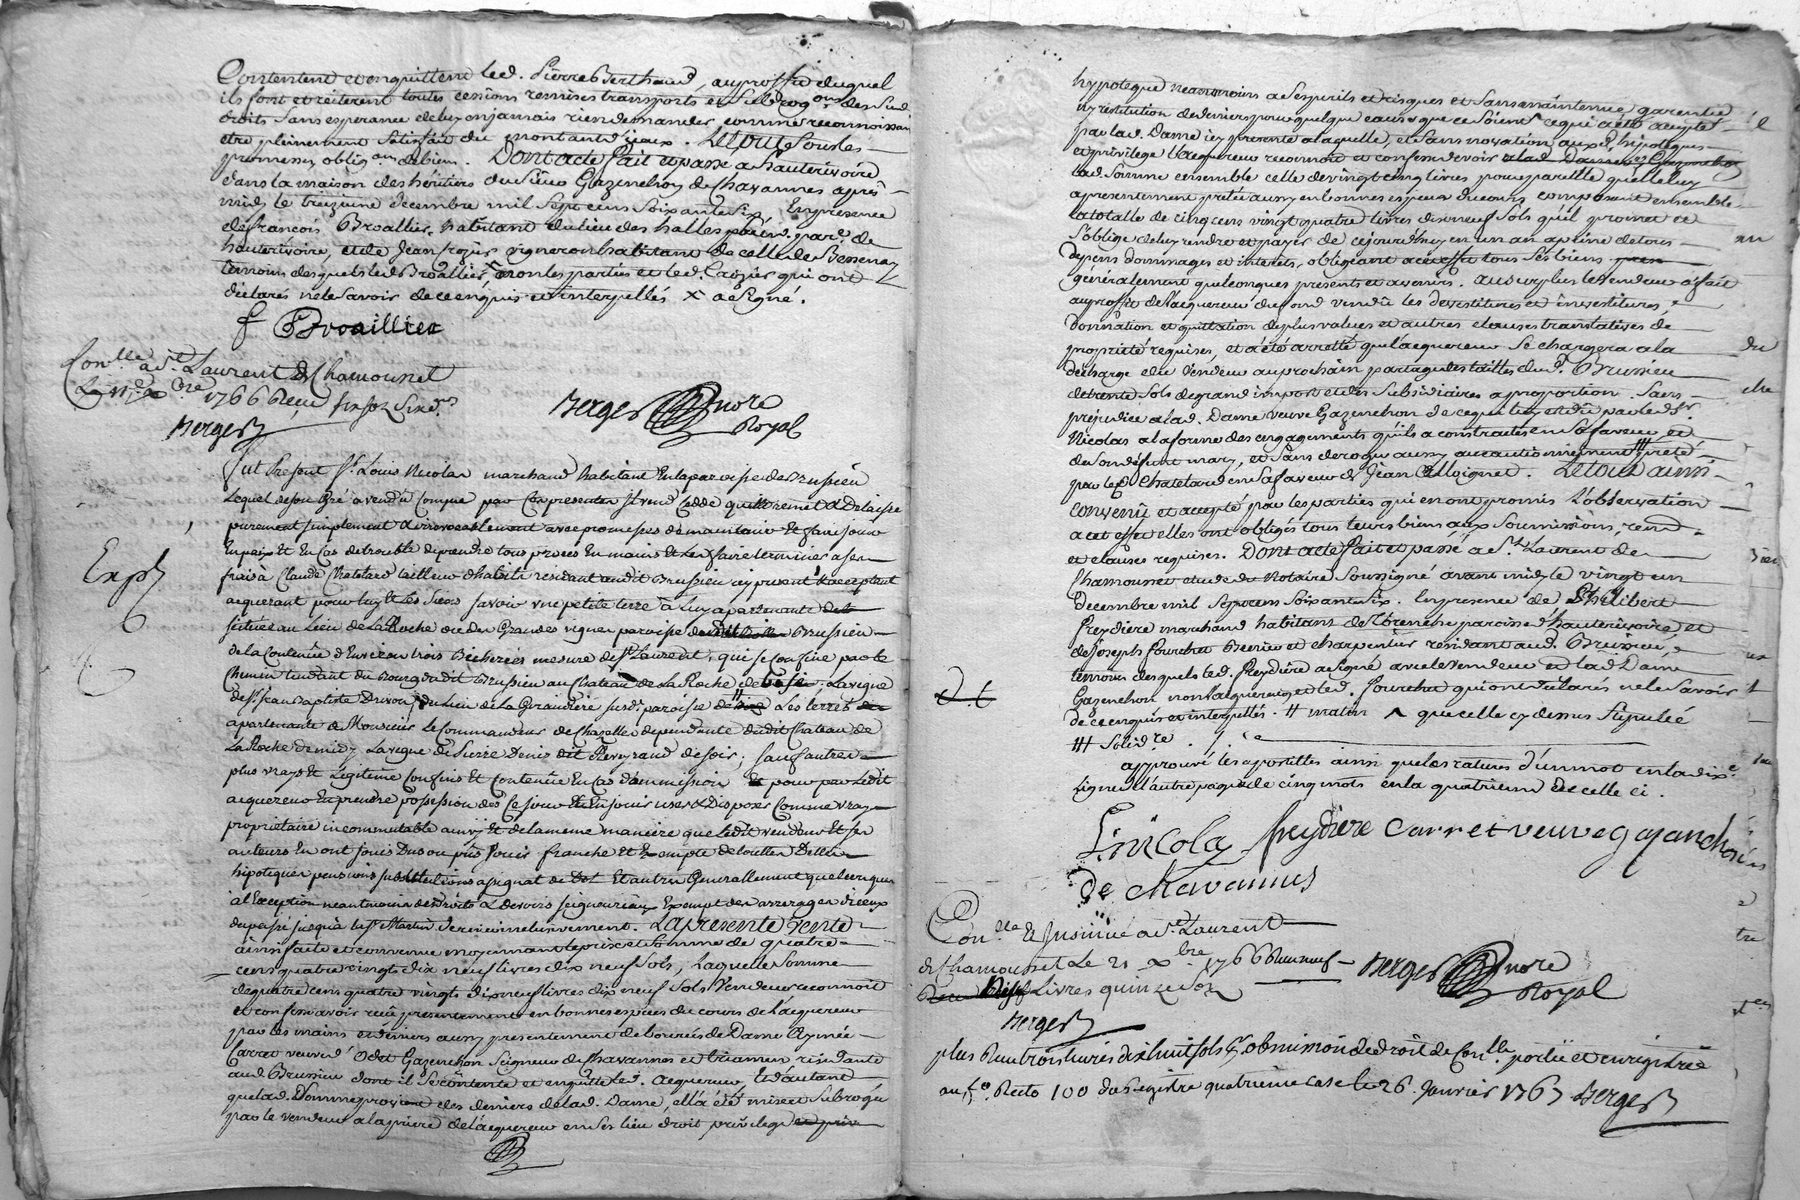 Contentent et enquittent led. Pierre Berthaud, au proffit duquel
ils font et reiterent toutes cessions remises transports et subrog.ons des sud.
droits sans esperance de luy en jamais rien demander comme reconnoissan
etre pleinement satisfait du montant d'iceux. Le tout sous les
promesses, oblig.ons de biens. Dont acte fait et passé a hauterivoire
dans la maison des héritiers du Sieur Gazenchon de Chavannes après
midy le treizieme decembre mil sept cens soixante six En presence
de françois Broallier habitant du lieu des halles par.
hauterivoire, et de Jean vigneron habitant de celle de Bessenay
temoins desquels led. Broallier, non les parties et led. qui ont
déclarés ne le savoir de ce enquis et interpellés X a signé.
f Broaillier
Con.lle a St Laurent de Chamousset
Le Xbre 1766 Reçu six sols six d.rs
Berger
Berger nore
Royal
Fut Present Sr Louis Nicolas marchand habitant En la paroisse de Brussieu
Lequel de son Gré a vendu comme par Ces presentes Il vend Cédde quitte remet & Delaisse
purement simplement & irrevocablement avec promesses de maintenir Et faire jouir
En paix Et En Cas de trouble de prendre tous procès En mains Et les faire terminer a ses
frais à Claude Chatelard tailleur d'habits residant audit Brussieu icy present & acceptant
acquerant pour luy Et Les Siens savoir une petite terre à Luy apartenante
située au Lieu de La Roche ou des Grandes vignes paroisse de Brussieu
de la Contenue d'Environ trois Bicherées mesure de St Laurent, qui se Confine par le
Chemin tendant du Bourg dudit Brussieu au Chateau de La Roche de La vigne
de Sr Jean Baptiste Duvon du Lieu de La Giraudiere susd. paroisse de Les terres
apartenante a Monsieur Le Commandeur de Chazelles dependante dudit Chateau de
La Roche de midy La vigne de Pierre Denis dit Reveyrand de soir, sauf autres
plus vrays Et Legitimes Confins Et Contenue En Cas d'ammission pour par Ledit
acquereur En prendre possession dès Ce jour En jouir user & Disposer Comme vray
proprietaire incommutable ainsy Et de la meme maniere que Ledit vendeur Et ses
auteurs En ont jouis Du ou pus Jouir franche Et Exempte de touttes Dettes
hipoteques pensions substitutions asignat de Dot Et autres Generallement quelconques
à l'Exception neantmoins des Droits & devoirs seigneuriaux Exempt des arrerages d'iceux
du passé jusqu'à la St Martin derniere. La presente vente
ainsi faite et convenue moyennant le prix et somme de quatre
cens quatre vingts dix neuf livres dix neuf sols, laquelle somme
de quatre cens quatre vingts dix neuf livres dix neuf sols vendeur reconnoit
et confesse avoir reçue presentement en bonnes especes du cours de l'acquereur
par les mains et deniers aussy presentement deboursés de Dame Aymée
Carret veuve d'Odet Gazenchon Seigneur de Chavannes et residante
aud. Brussieu dont il se contente et enquitte led. acquereur, Et d'autant
que lad. Somme provient des deniers de lad. Dame, ell'a été mise et subrogée
par le vendeur a la priere de l'acquereur en ses lieu droit privilege
Exp
hypoteque neanmoins a ses perils et risques et sans maintenue garentie
ny restitution de deniers pour quelque cause que ce soient, ce qui a été accepté
par lad. Dame icy presente a laquelle, et sans novation auxd. hipoteques
et privilege l'acquereur reconnoit et confesse devoir a lad. Dame
lad. somme ensemble celle de vingt cinq livres pour pareille qu'elle luy
a presentement pretée aussy en bonnes especes du cours composant ensemble
la totalle de cinq cens vingt quatre livres dix neuf sols qu'il promet et
s'oblige de luy rendre et payer de ce jourd'huy en un an a peine de tous
depens dommages et interets, obligeant a cet effet tous ses biens
généralement quelconques presents et avenirs. Au surplus le vendeur a fait
au proffit de l'acquereur du fond vendu les devestitures et investitures,
donnation et quittation de plus values et autres clauses translatives de
propriété requises, et a été arretté que l'acquereur se chargera a la
decharge du vendeur au prochain partage des tailles dud. Brussieu
de trente sols de grand import et des subsidiaires a proportion. Sans
préjudice a lad. Dame veuve Gazenchon de ce qui luy est dû par led. Sr
Nicolas a la forme des engagements qu'il a contractés en sa faveur, et
de son défunt mary, et sans deroger aussy au cautionnement preté
par led. Chatelard en sa faveur de Jean Moignet. Le tout ainsi
convenu et accepté par les parties qui en ont promis l'observation
a cet effet elles ont obligés tous leurs biens aux soumissions, rend.
et clauses requises. Dont acte fait et passé a St Laurent de
Chamousset etude du Notaire soussigné avant midy le vingt un
decembre mil sept cens soixante six. En presence de Philibert
Freydière marchand habitant de paroisse d'hauterivoire, et
de Joseph Fourchet et charpentier residant aud. Brussieu,
temoins desquels led. Freydière a signé avec le vendeur et lad. Dame
Gazenchon non l'acquereur, et led. Fourchet qui ont déclarés ne le savoir
de ce enquis et interpellés. # matin ^ que celle cy dessus stipulée
### solid.re
approuvé les apostilles ainsi que les ratures d'un mot en la dix.e
ligne d'autre page de cinq mots en la quatrieme de celle ci.
L. nicolas freydiere carret veuve gazanchon
de chavannes
Con.lle & Insinué a St Laurent
de Chamousset Le 21 Xbre 1766
Reçu livres quinze sols
Berger
Berger nore
Royal
plus Reçu trois livres dix huit sols p. obmission de droit de Con.lle portée et enregistrée
au f.o Recto 100 du Registre quatrieme case le 26 Janvier 1767 Berger